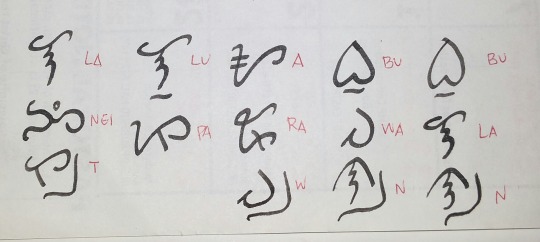 ᜎ LA ᜅᜒ NGI ᜆ᜕ T
ᜎᜓ LU ᜉ PA
ᜀ A ᜍ RA ᜏ᜕ W
ᜊᜓ BU ᜏ WA ᜈ᜕ N
ᜊᜓ BU ᜎ LA ᜈ᜕ N